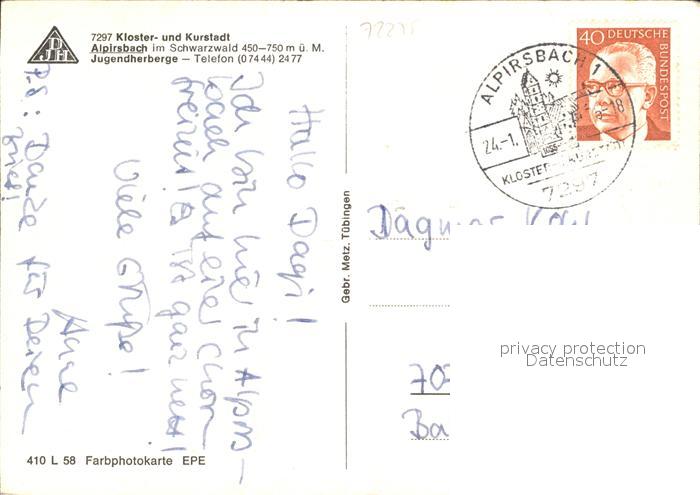 DJH
7297 Kloster- und Kurstadt
Alpirsbach im Schwarzwald 450—750 m ü. M.
Jugendherberge — Telefon (07444) 2477
Hallo Dagi!
Ich bin hier in Alpirs-
bach auf einer Chor-
freizeit! Es ist ganz nett!
Viele Grüße!
Anne
P.S.: Danke für Deinen
Brief!
410 L 58 Farbphotokarte EPE
Gebr. Metz, Tübingen
ALPIRSBACH 1
24.-1.
-18
KLOSTER-
7297
40 DEUTSCHE
BUNDESPOST
Dagmar
70
Ba
privacy protection
Datenschutz